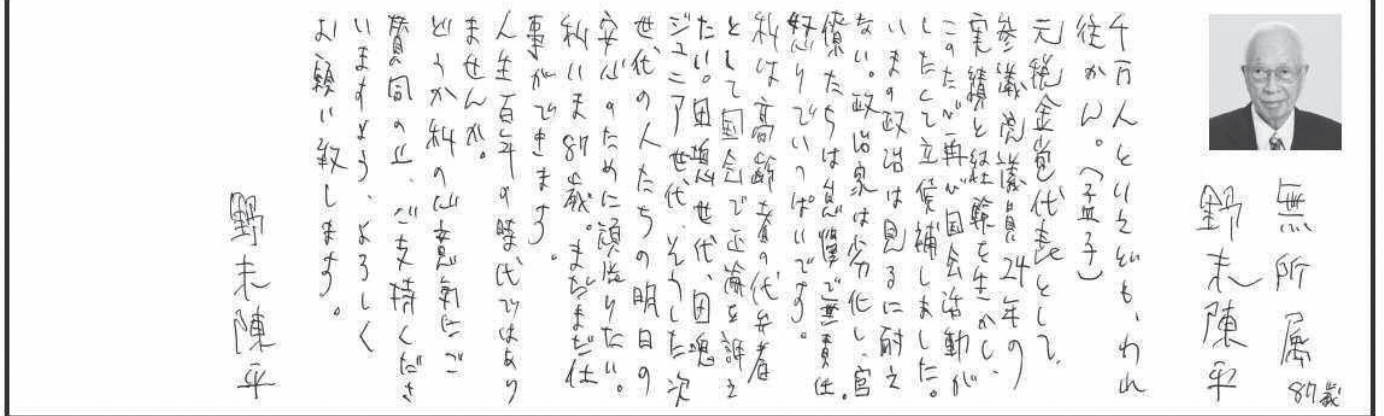 無所属
87歳
野末陳平
千万人といえども、われ
往かん。(孟子)
元税金党代表として、
参議院議員24年の
実績と経験を生かし、
このたび再び国会活動が
したくて立候補しました。
いまの政治は見るに耐え
ない。政治家は劣化し、官
僚たちは怠惰で無責任。
怒りでいっぱいです。
私は高齢者の代弁者
として国会で正論を訴え
たい。団塊世代、団塊
ジュニア世代、そうした次
世代の人たちの明日の
安心のために頑張りたい。
私いま87歳。まだまだ仕
事ができます。
人生百年の時代ではあり
ませんか。
どうか私の心意気にご
賛同の上、ご支持くださ
いますよう、よろしく
お願い致します。
野末陳平